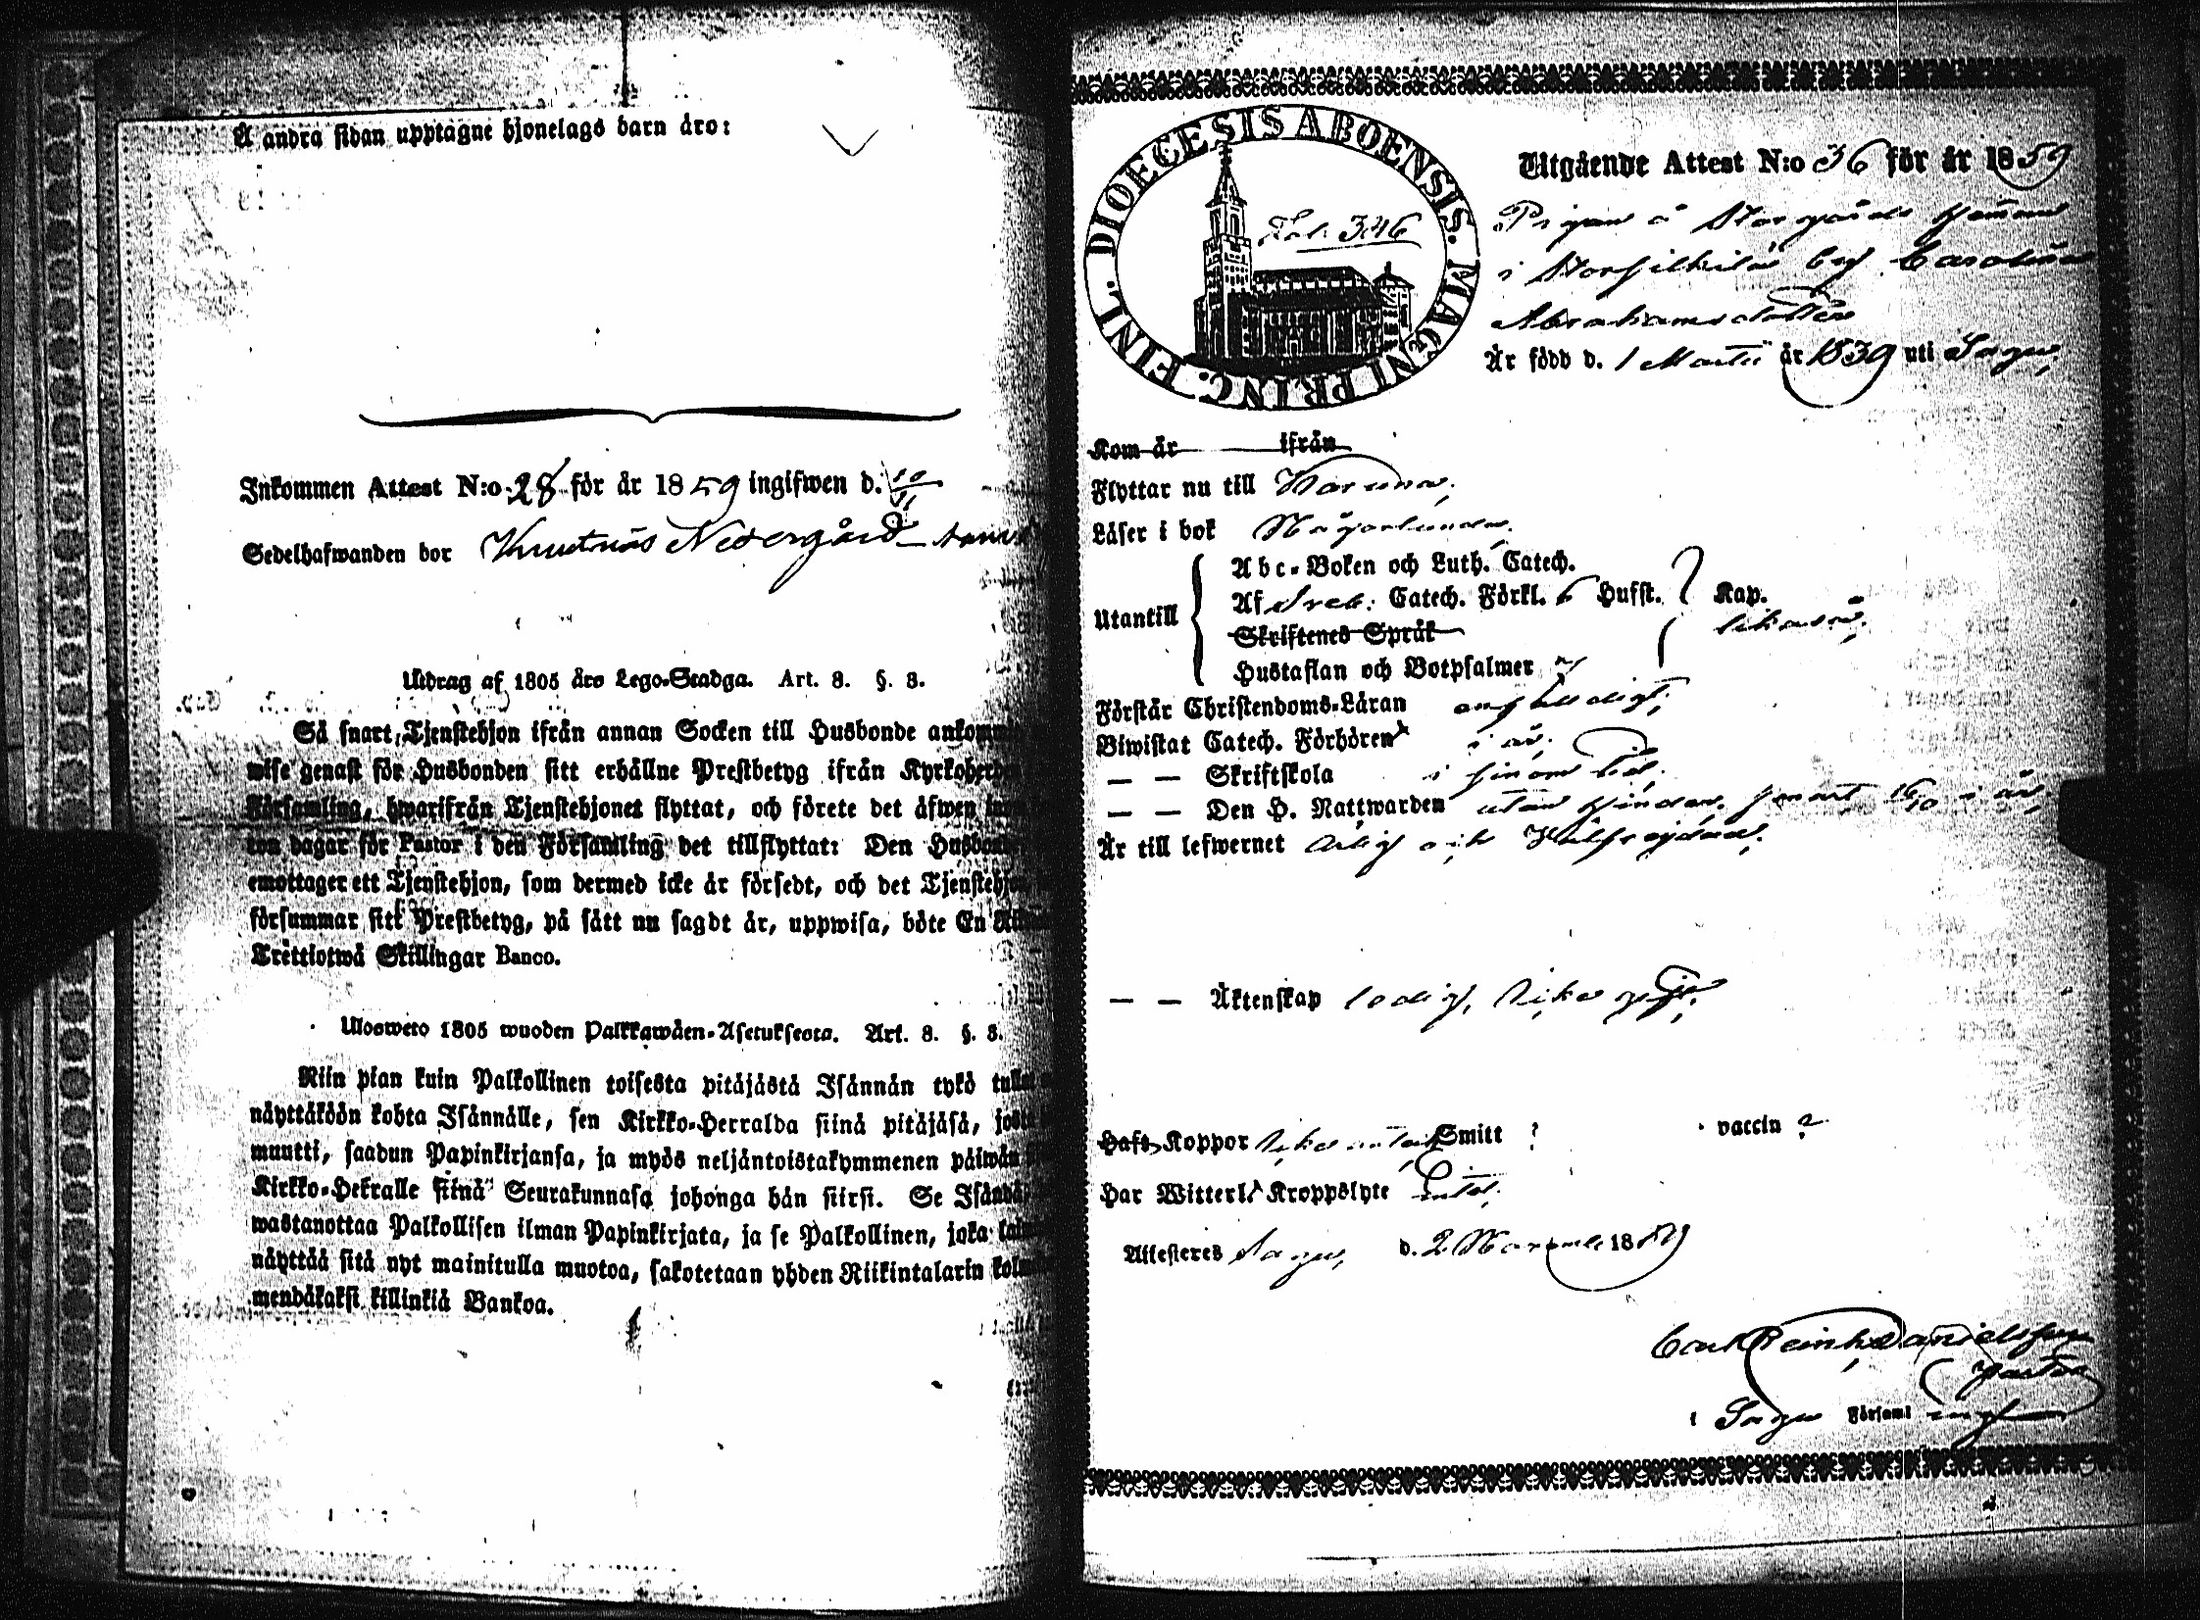 Å andra sidan upptagne hjonelags barn äro:
Inkommen Attest N:o 28 för år 1859 ingifwen d. 10/11
Sedelhafwanden bor Knutnäs Nedergård
Utdrag af 1805 års Lego-Stadga. Art. 8. §. 8.
Så snart Tjenstehjon ifrån annan Socken till Husbonde
wise genast för Husbonden sitt erhållne Prestbetyg ifrån
Församling, hwarifrån Tjenstehjonet flyttat, och förete det äfwen
ton dagar för Pastor i den Församling det tillflyttat: Den
emottager ett Tjenstehjon, som dermed icke är försedt, och det
försummar sitt Prestbetyg, på sätt nu sagdt är, uppwisa, böte En
Trettiotwå Skillingar Banco.
Ulosweto 1805 wuoden Palkkawäen-Asetuksesta. Art. 8. §. 8.
Niin pian kuin Palkollinen toisesta pitäjästä Isännän tykö
näyttäköön kohta Isännälle, sen Kirkko-Herralda siinä pitäjäsä,
muutti, saadun Papinkirjansa, ja myös neljäntoistakymmenen päiwän
Kirkko-Herralle siinä Seurakunnasa johonga hän siirsi. Se
wastanottaa Palkollisen ilman Papinkirjata, ja se Palkollinen, joka
näyttää sitä nyt mainitulla muotoa, sakotetaan yhden Riikintalarin
mendäkaksi killinkiä Bankoa.
DIOECESIS ABOENSIS. MAGNI PRINC. FINL.
Fol. 346
Utgående Attest N:o 36 för år 1859
Pigan å Storgårds hemman
i by Carolina
Abrahamsdotter
Är född d. 1 Martii år 1839 uti Sagu,
Kom år ifrån
Flyttar nu till Karuna,
Läser i bok Någorlunda,
Utantill
Abc-Boken och Luth. Catech.
Af Sveb: Catech. Förkl. 6 Hufst. Kap.
Skriftenes Språk
likaså,
Hustaflan och Botpsalmer
Förstår Christendoms-Läran enfaldigt,
Biwistat Catech. Förhören i år.
— — Skriftskola i sinom tid.
— — Den H. Nattwarden utan hinder, senast i år,
Är till lefwernet ärlig och Wälfrejdad.
— — Äktenskap ledig, icke gift,
Haft Koppor icke antec. Smitt ? vaccin ?
Har Witterl. Kroppslyte intet.
Attesteres Sagu, d. 2 Novemb. 1859
Carl Reinh. Danielsson
Pastor
i Sagu Församling